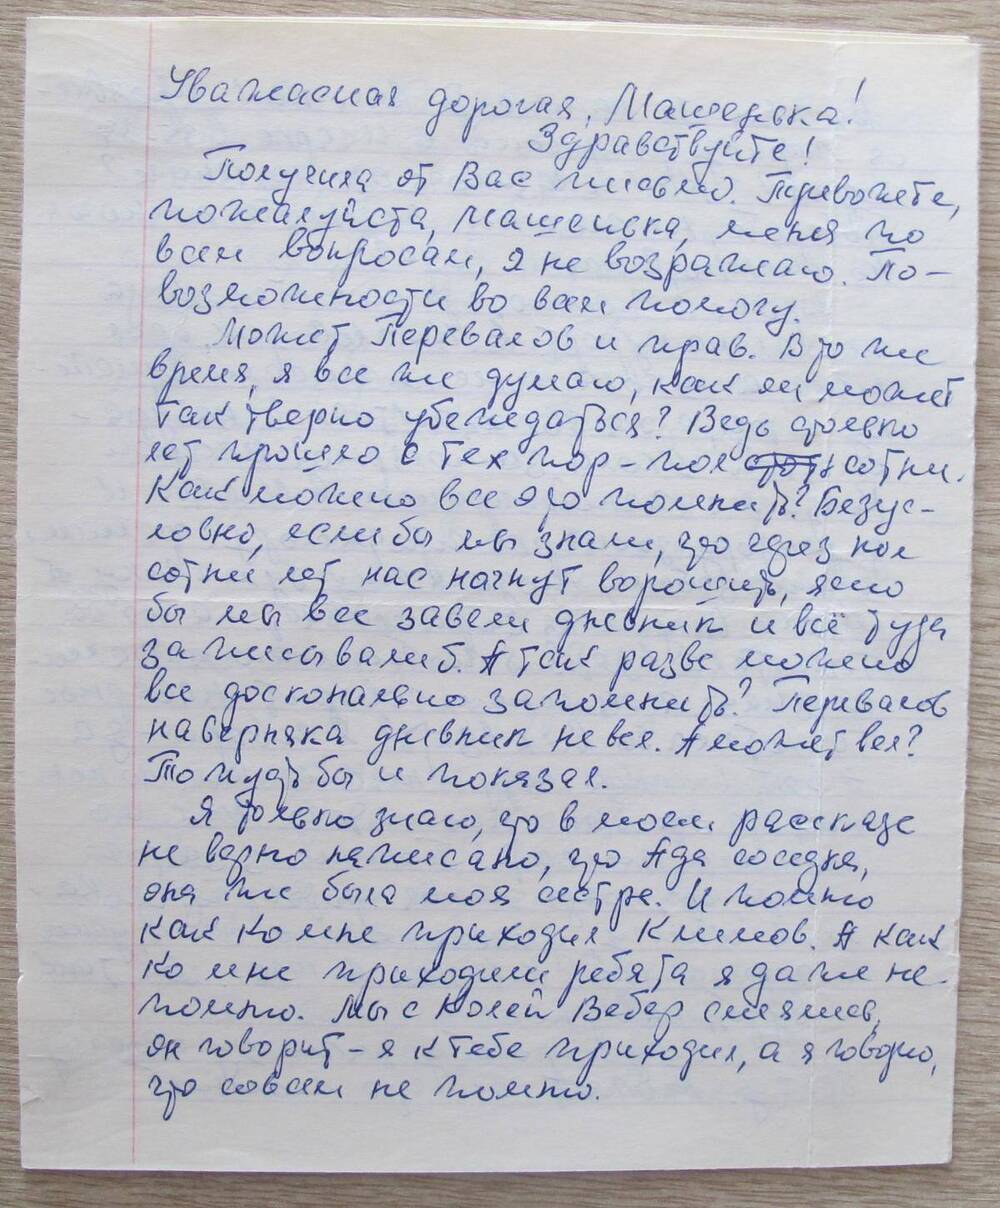 Уважаемая дорогая, Машенька!
Здравствуйте!
Получила от Вас письмо. Тревожьте,
пожалуйста, Машенька, меня по
всем вопросам, я не возражаю. По-
возможности во всем помогу.
Может Перевалов и прав. В то же
время, я все же думаю, как он может
так тверно убеждаться? Ведь столько
лет прошло с тех пор – пол сотни.
Как можно все это помнить? Безус-
ловно, если бы мы знали, что через пол
сотни лет нас начнут ворошить, ясно
бы мы все завели дневник и всё туда
записывали б. А так разве можно
все доскопально запомнить? Перевалов
наверняка дневник не вел. А может вел?
То пусть бы и показал.
Я только знаю, что в моем рассказе
не верно написано, что Ада соседка,
она же была моя сестра. И помню
как ко мне приходил Климов. А как
ко мне приходили ребята я даже не
помню. Мы с Колей Вебер смеялись,
он говорит – я к тебе приходил, а я говорю,
что совсем не помню.